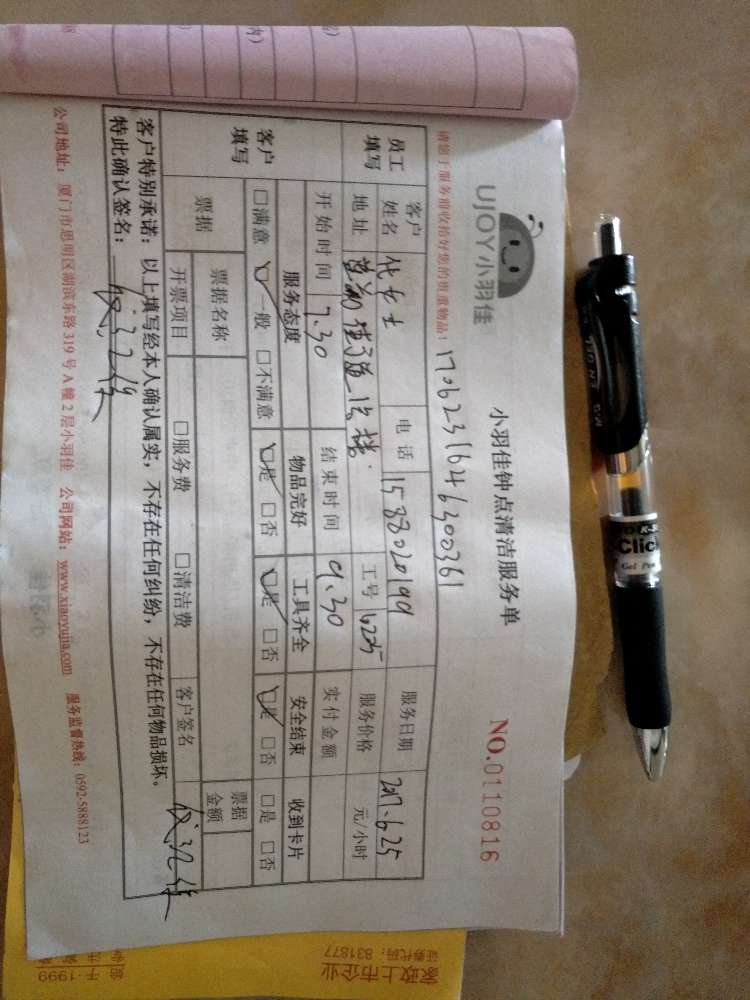 UJOY小羽佳
小羽佳钟点清洁服务单
NO.0110816
请您于服务前收拾好您的贵重物品！
170623164630036 1
员工填写
客户姓名 代女士 电话 1588020199 服务日期 2017.6.25
地址 工号 16225 服务价格 元/小时
开始时间 7.30 结束时间 9.30 实付金额
客户填写
服务态度 物品完好 工具齐全 安全结束 收到卡片
□满意 □一般 □不满意 □是 □否 □是 □否 □是 □否 □是 □否
票据 票据名称 票据金额
开票项目 □服务费 □清洁费 客户签名
客户特别承诺：以上填写经本人确认属实，不存在任何纠纷，不存在任何物品损坏。
特此确认签名：
公司地址：厦门市思明区湖滨东路 319 号 A 幢 2 层小羽佳 公司网站：www.xiaoyujia.com 服务监督热线：0592-5888123
Click
Gel Pen
家政上市企业
证券代码：831877
于·1999